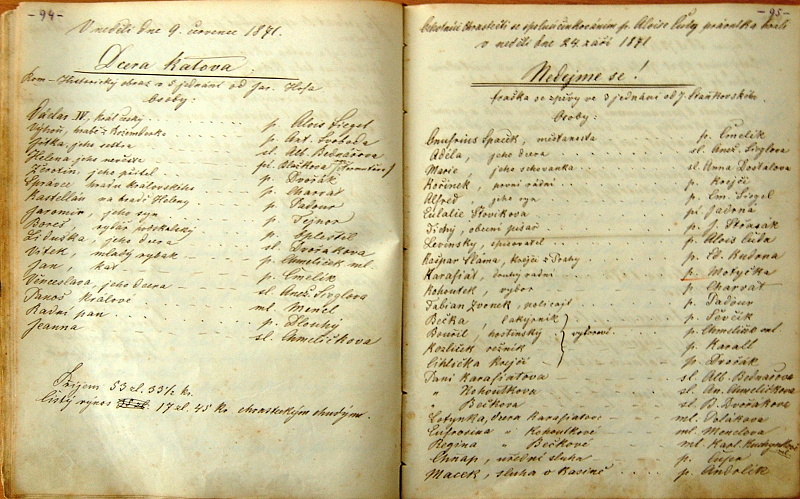 - 94 -
V neděli dne 9. července 1871.
Dcera katova.
Rom-Historický obraz v 5 jednání od Jar. Hofa
Osoby:
Václav IV, král český p. Alois Siegel
Vyhoň, hrabě p. Ant. Svoboda
Jitka, jeho sestra sl. Alb. Bednářova
Helena, jeho
Zerotín, jeho přítel p. Dvořák
Správce hradu královského p. Charvát
Kastellán na hradě Heleny p. Padour
Jaromír, jeho syn p. Pejnor
Boreš, rybář podskalský
Liduška, jeho dcera sl. Dvořákova
Vítek, mladý rybák p. Chmelíček ml.
Jan, kat p. Čmelík
Věnceslava, jeho dcera sl. Anež. Sirglova
Panoš Králové ml. Mencl
Radní pan p. Dlouhý
Jeanna sl. Chmelíčkova
Příjem 53 zl. 33 1/2 kr.
Čistý výnos 17 zl. 45 kr. chrasteckým chudým.
- 95 -
Ochotníci chrastečtí se spoluúčinkováním p. Aloise Čudy
v neděli dne 24. září 1871
Nedejme se!
fraška se zpěvy ve 3 jednání od J. Staňkovského.
Osoby:
Onufrius Spacek, p. Čmelík
Adéla, jeho dcera sl. Anež. Sirglova
Marie, jeho schovanka sl. Anna Dostalova
Kořínek, první radní p. Krejčí
Alfred, jeho syn p. Em. Siegel
Eulalie Slovíkova
Tichý, obecní písař p. J. Strašák
Levinský, spisovatel p. Alois Čuda
Kašpar Sláma, krejčí z Prahy p. Ed. Kudrna
Karafiat, druhý radní p. Motyčka
Kohoutek, výbor p. Charvát
Fabian Zvonek, policajt p. Padour
Bečka, lakýrník p. Ševčík
Bouřil, hostinský výborové p. Chmelíček ml
Kozlíček řezník p. Karall
Cihlička krejčí p. Dvořák
Paní Karafiatova sl. Alb. Bednářova
" Kohoutkova sl. An. Chmelíčkova
" Bečkova sl. B. Dvořákova
Letynka, dcera Karafiatové ml. Polákova
Eufrosina " Kohoutkové ml. Menclova
Regina " Bečkové ml. Karl.
Chňap, úřední sluha
Macek, sluha v kasině p. Andrlík